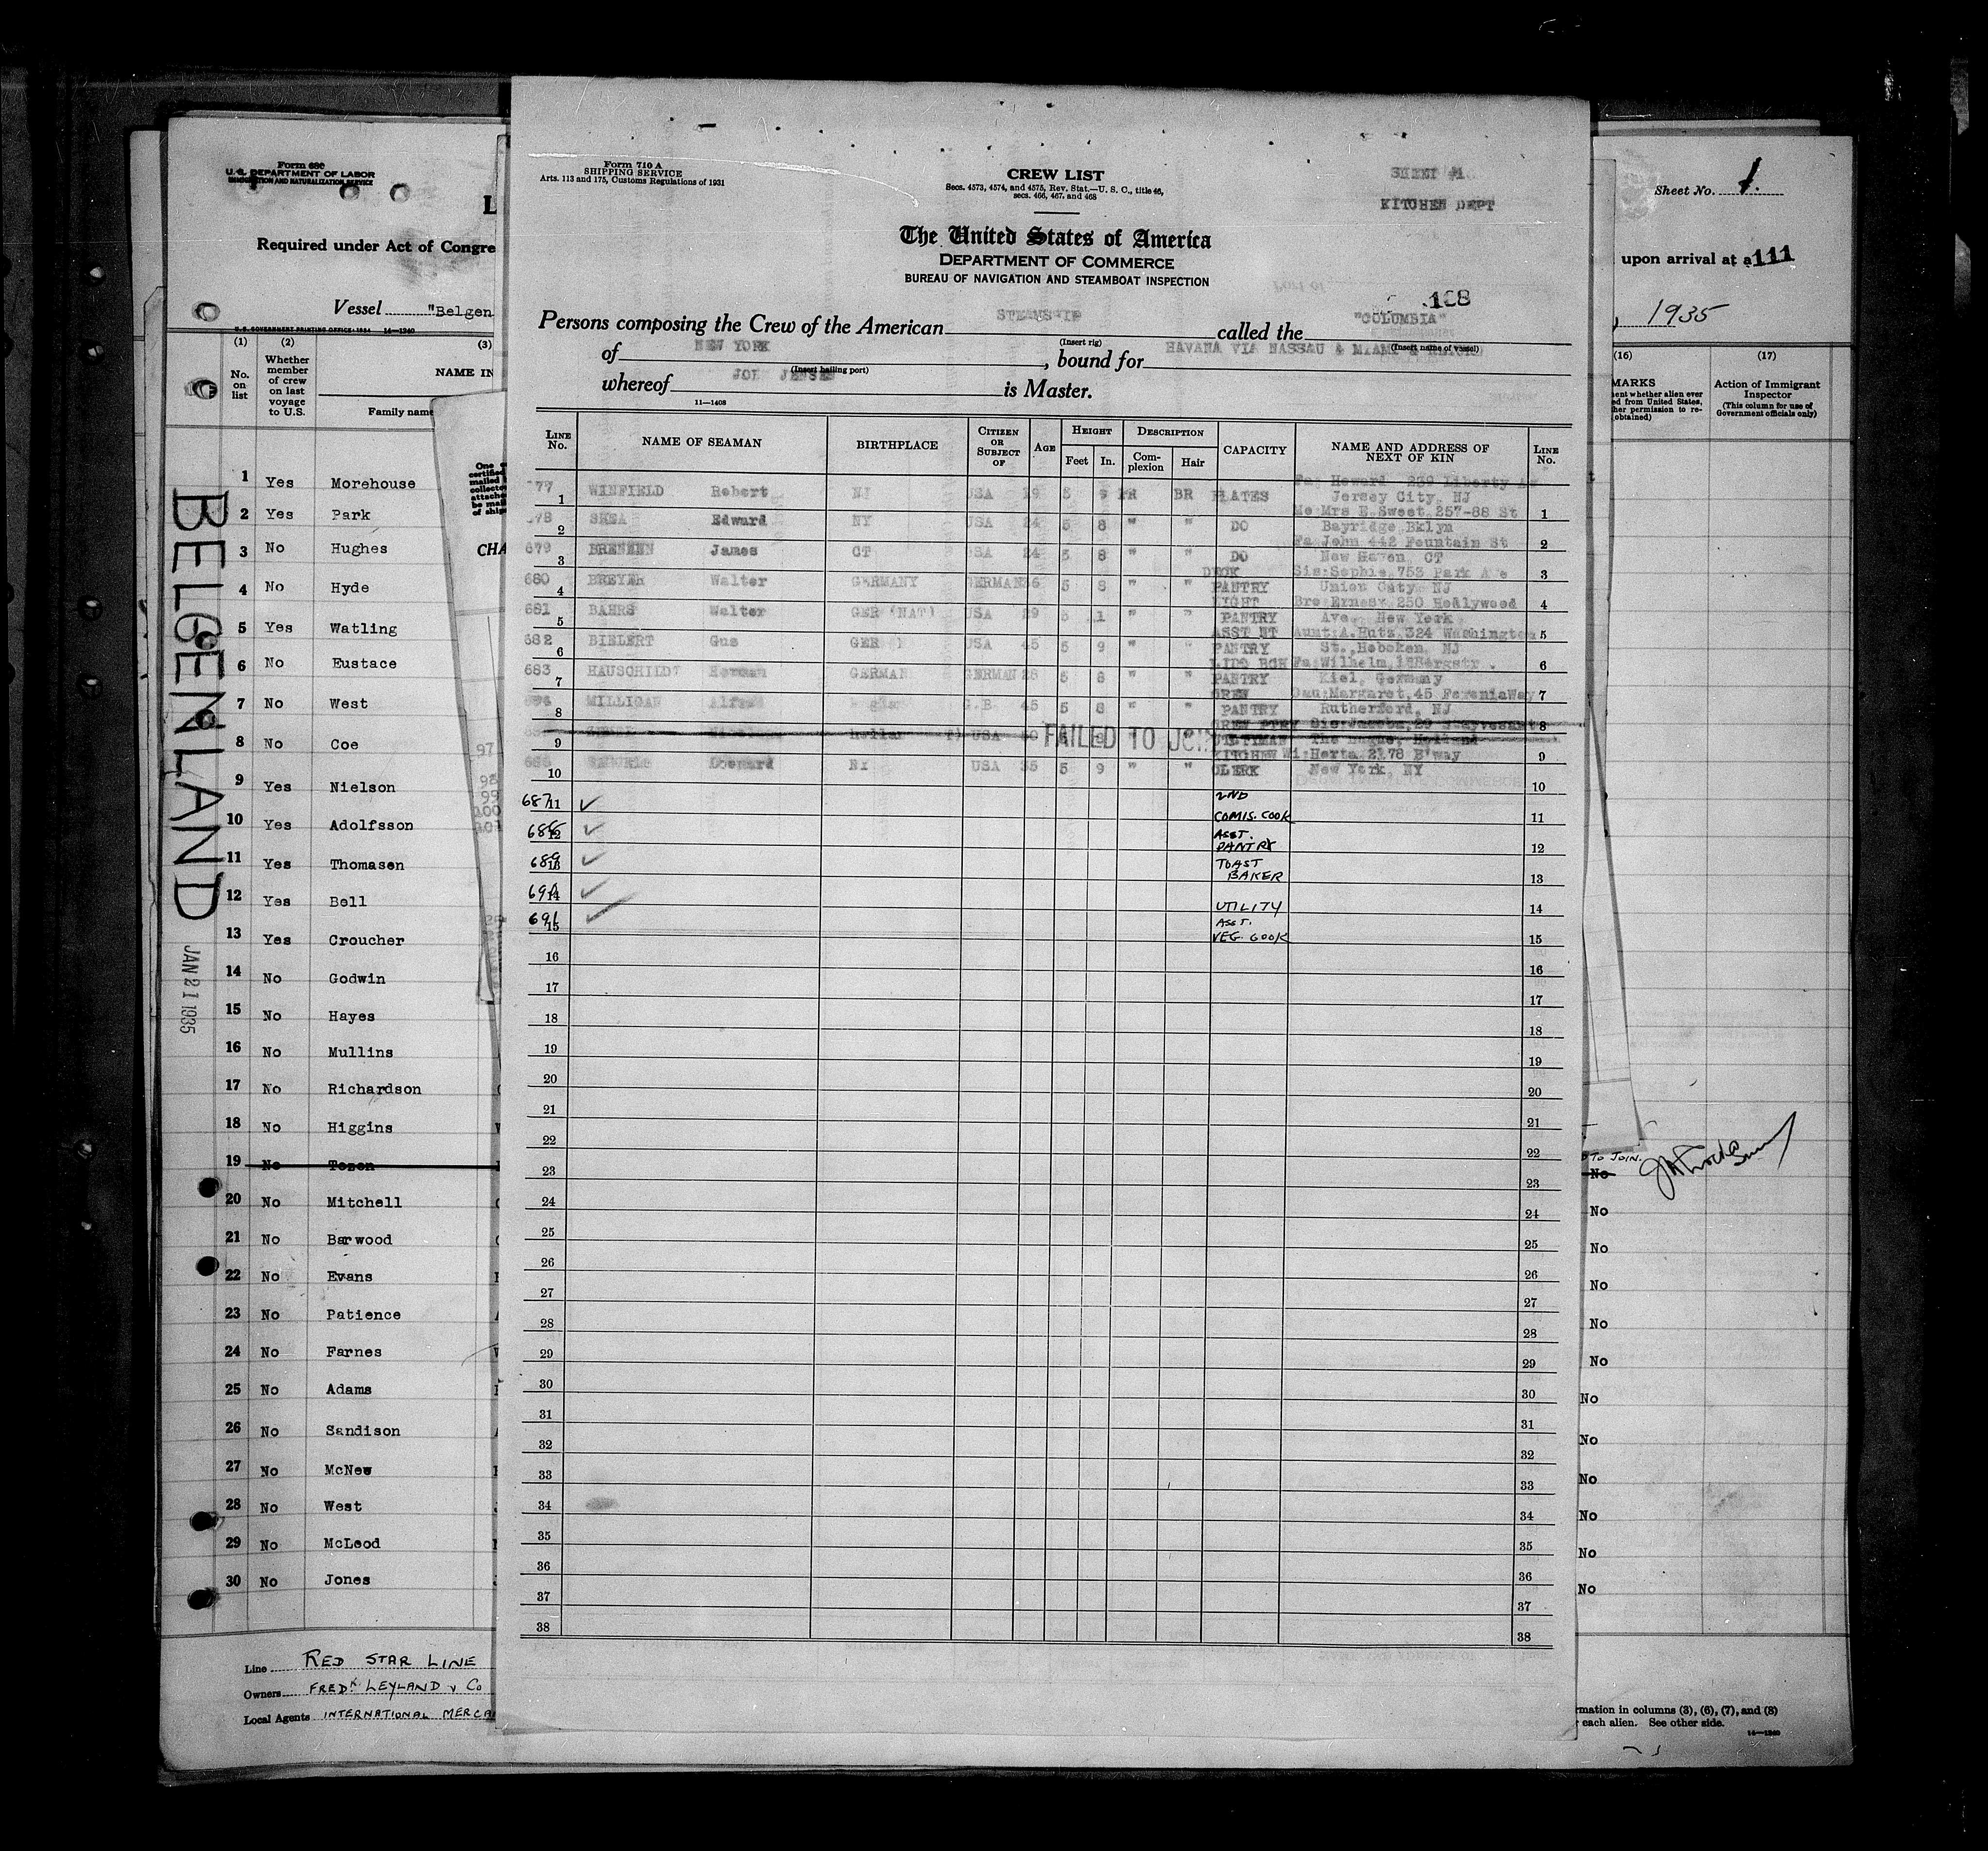 Form 680
U. S. DEPARTMENT OF LABOR
IMMIGRATION AND NATURALIZATION SERVICE
Required under Act of Congre
Vessel "Belgen
U. S. GOVERNMENT PRINTING OFFICE: 1934 14—1240
(1) (2) (3)
No. on list
Whether member of crew on last voyage to U.S.
NAME IN
Family name
1 Yes Morehouse
2 Yes Park
3 No Hughes
4 No Hyde
5 Yes Watling
6 No Eustace
7 No West
8 No Coe
9 Yes Nielson
10 Yes Adolfsson
11 Yes Thomasen
12 Yes Bell
13 Yes Croucher
14 No Godwin
15 No Hayes
16 No Mullins
17 No Richardson
18 No Higgins
19 No Tozon
20 No Mitchell
21 No Barwood
22 No Evans
23 No Patience
24 No Farnes
25 No Adams
26 No Sandison
27 No McNew
28 No West
29 No McLeod
30 No Jones
Line RED STAR LINE
Owners FREDK LEYLAND & Co
Local Agents INTERNATIONAL MERCA
BELGENLAND
JAN 21 1935
CHA
Form 710 A
SHIPPING SERVICE
Arts. 113 and 175, Customs Regulations of 1931
CREW LIST
Secs. 4573, 4574, and 4575, Rev. Stat.—U. S. C., title 46,
secs. 466, 467, and 468
SHEET #1
KITCHEN DEPT
The United States of America
DEPARTMENT OF COMMERCE
BUREAU OF NAVIGATION AND STEAMBOAT INSPECTION
108
Persons composing the Crew of the American STEAMSHIP called the "COLUMBIA"
(Insert rig) (Insert name of vessel)
of NEW YORK, bound for HAVANA VIA NASSAU & MIAMI &
(Insert hailing port)
whereof JENSEN is Master.
11—1408
LINE No. NAME OF SEAMAN BIRTHPLACE CITIZEN OR SUBJECT OF AGE HEIGHT Feet In. DESCRIPTION Complexion Hair CAPACITY NAME AND ADDRESS OF NEXT OF KIN LINE No.
677 1 WINFIELD Robert NJ USA 29 5 FR BR PLATES Fa: Howard 239 Liberty Av Jersey City, NJ 1
678 2 SHEA Edward NY USA 24 5 8 " " DO Mrs E. Sweet 257-88 St Bayridge Bklyn 2
679 3 BRENNEN James CT USA 24 5 8 " " DO Fa John 442 Fountain St New Haven, CT 3
680 4 BREYER Walter GERMANY GERMAN 36 5 8 " " DECK PANTRY Sis: Sophie, 753 Park Ave Union City NJ 4
681 5 BAHRS Walter GER (NAT) USA 29 5 1 " " NIGHT PANTRY Bro Ernest 250 Hollywood Ave, New York 5
682 6 BIELERT Gus GER USA 45 5 9 " " ASST NT PANTRY Aunt: A. Hutz, 324 Washington St., Hoboken, NJ 6
683 7 HAUSCHILDT Herman GERMAN GERMAN 25 5 8 " " LIDO BCH PANTRY Fa: Wilhelm, Bergstr. Kiel, Germany 7
8 MILLIGAN G.B. 45 5 8 " " CREW PANTRY Dau: Margaret, 45 Rutherford, NJ 8
9 Holland USA FAILED TO JOIN CREW PTRY UTILITYMAN The Hague, Holland 9
10 NY USA 35 5 9 " " KITCHEN CLERK Wi: Herta 2178 B'way New York, NY 10
687 11 ✓ 2ND COMIS. COOK 11
688 12 ✓ ASST. PANTRY 12
689 13 ✓ TOAST BAKER 13
690 14 ✓ UTILITY 14
691 15 ✓ ASST. VEG. COOK 15
16 16
17 17
18 18
19 19
20 20
21 21
22 22
23 23
24 24
25 25
26 26
27 27
28 28
29 29
30 30
31 31
32 32
33 33
34 34
35 35
36 36
37 37
38 38
Sheet No. 1.
upon arrival at a 111
, 1935
(16) (17)
MARKS
Action of Immigrant Inspector
(This column for use of Government officials only)
TO JOIN.
No
No
No
No
No
No
No
No
No
No
No
No
rmation in columns (3), (6), (7), and (8)
each alien. See other side.
14—1240